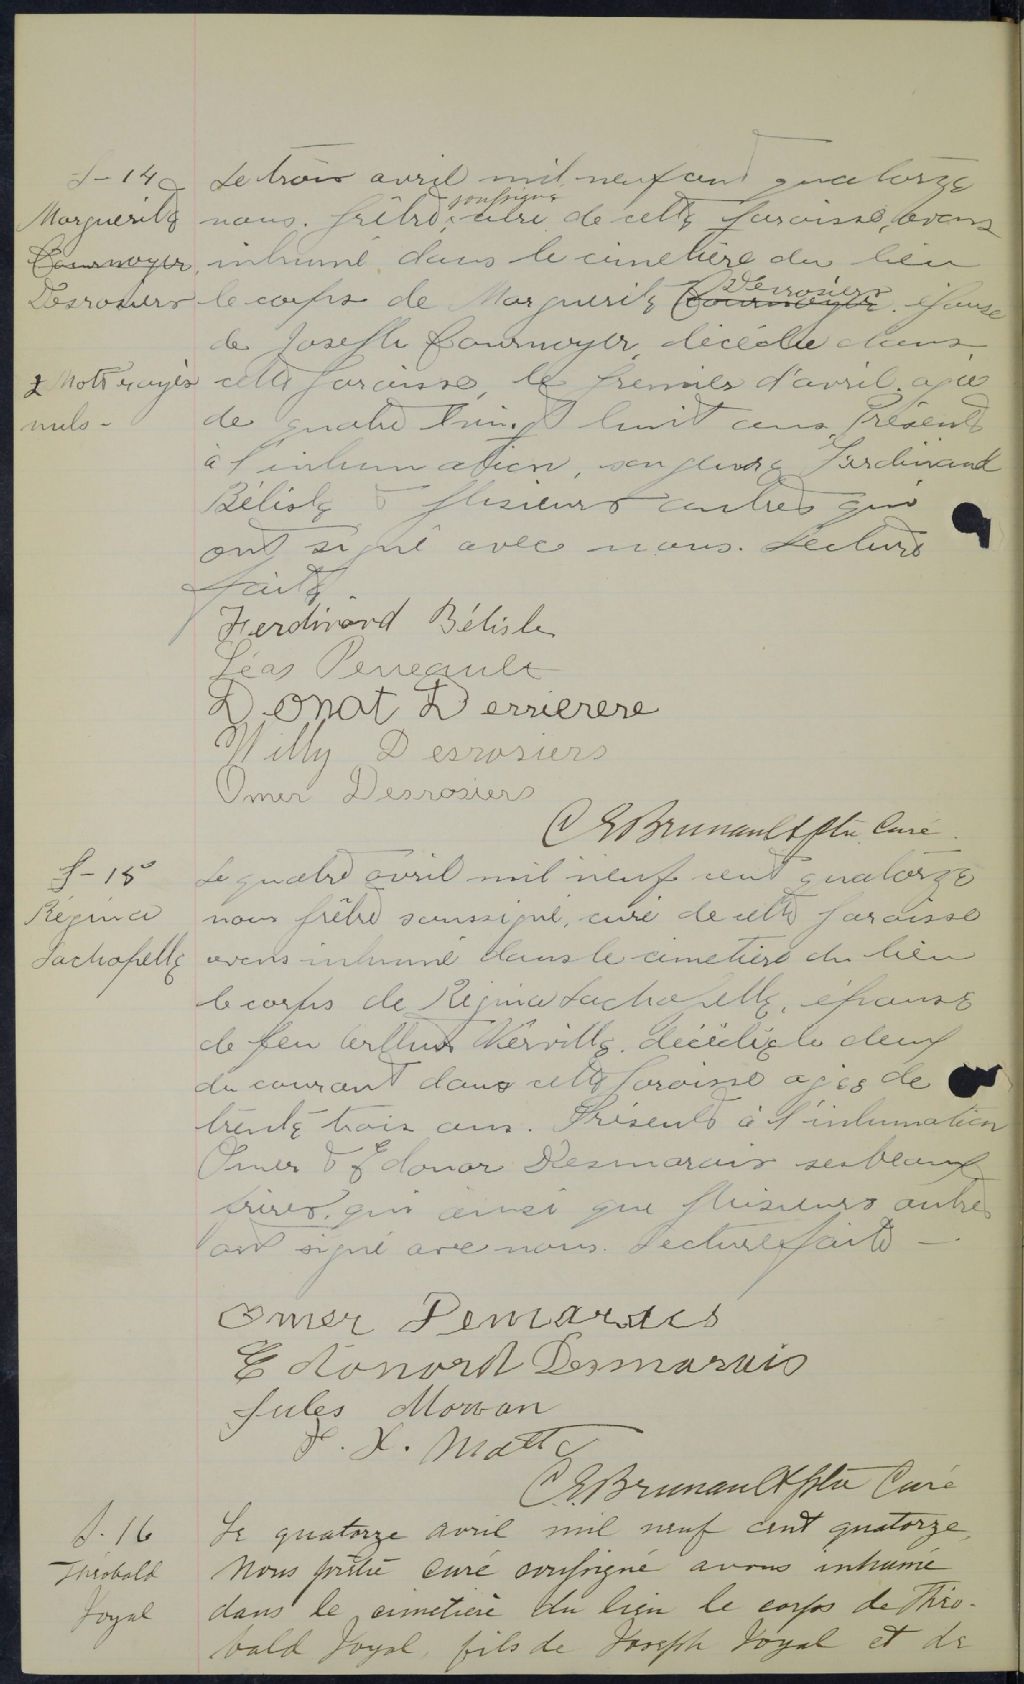 S-14
Marguerite
Cournoyer
Desrosiers
2 Mots rayés
nuls -
Le trois avril mil neuf cent quatorze
nous prêtre soussigné curé de cette paroisse, avons
inhumé dans le cimetière du lieu
le corps de Marguerite Cournoyer Desrosiers épouse
de Joseph Cournoyer, décédée dans
cette paroisse, le premier d'avril, agée
de quatre vingt huit ans. Présents
à l'inhumation, son gendre Ferdinand
Bélisle & plusieurs autres qui
ont signé avec nous. Lecture
faite
Ferdinand Bélisle
Léas Perreault
Donat Derrierere
Willy Desrosiers
Omer Desrosiers
C E Brunault ptre Curé.
S-15
Régina
Lachapelle
Le quatre avril mil neuf cent quatorze
nous prêtre soussigné, curé de cette paroisse
avons inhumé dans le cimetière du lieu
le corps de Régina Lachapelle, épouse
de feu Arthur Kerville, décédée le deux
du courant dans cette paroisse agée de
trente trois ans. Présents à l'inhumation
Omer & Edouar Desmarais ses beaux
frères, qui ainsi que plusieurs autres
ont signé avec nous. Lecture faite -
Omer Demarais
Edouard Desmarais
Jules
F. X. Matte
C. E. Brunault ptre Curé
S. 16
Théobald
Joyal
Le quatorze avril mil neuf cent quatorze,
Nous prêtre curé soussigné avons inhumé
dans le cimetière du lieu le corps de Théo-
bald Joyal, fils de Joseph Joyal et de